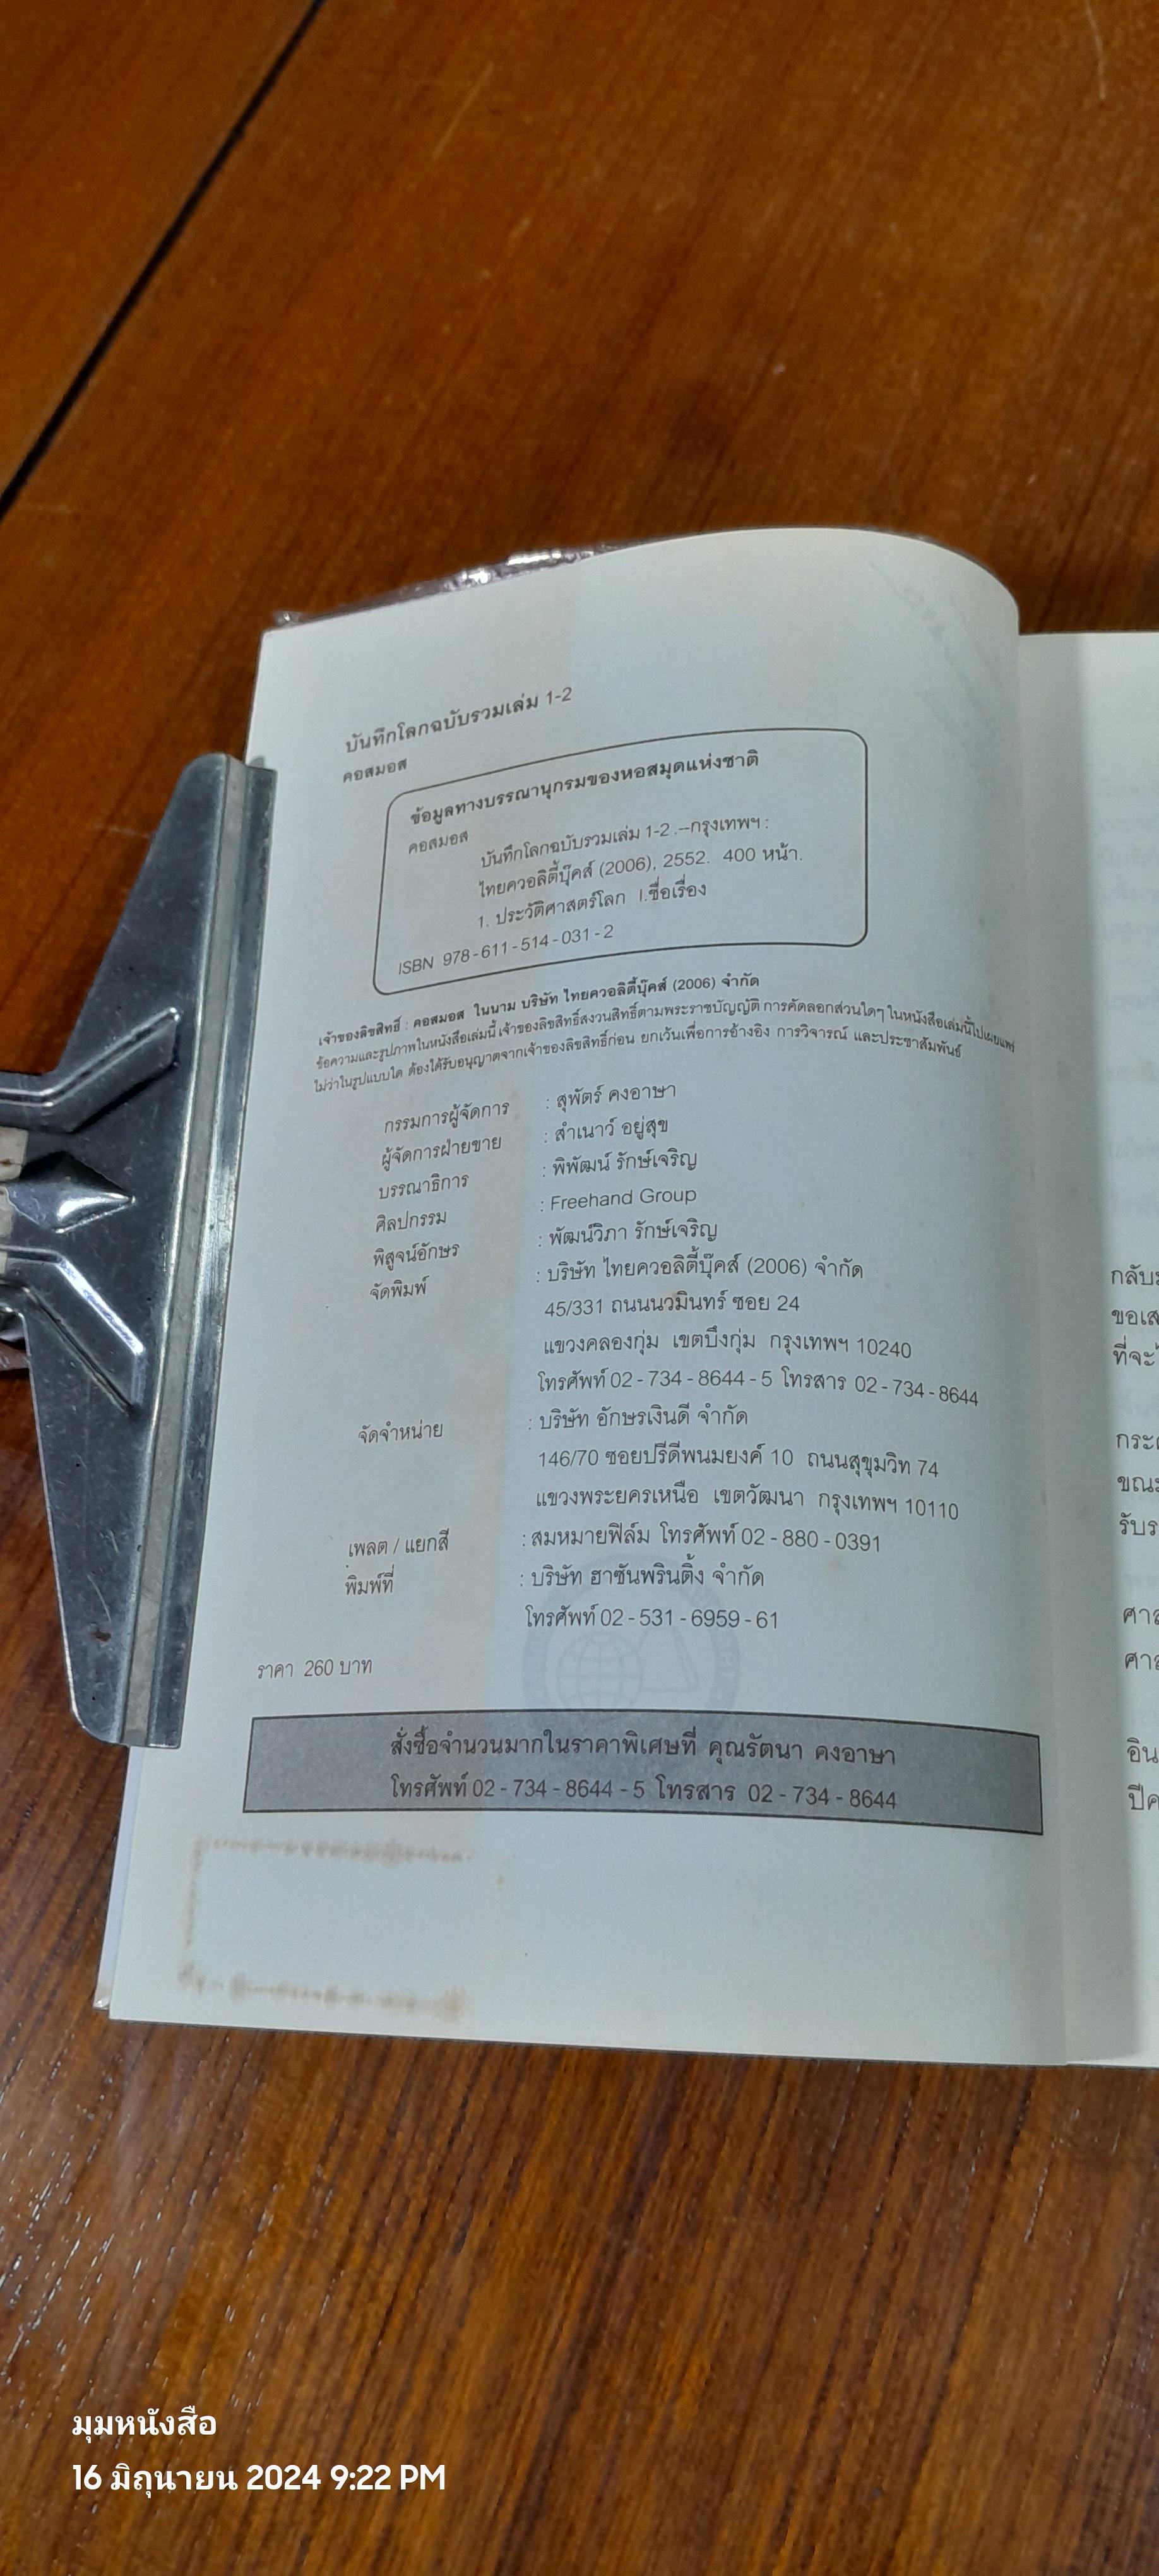 บันทึกโลกฉบับรวมเล่ม 1-2
คอสมอส
ข้อมูลทางบรรณานุกรมของหอสมุดแห่งชาติ
คอสมอส
บันทึกโลกฉบับรวมเล่ม 1-2 .--กรุงเทพฯ :
ไทยควอลิตี้บุ๊คส์ (2006), 2552. 400 หน้า.
1. ประวัติศาสตร์โลก I.ชื่อเรื่อง
ISBN 978-611-514-031-2
เจ้าของลิขสิทธิ์ : คอสมอส ในนาม บริษัท ไทยควอลิตี้บุ๊คส์ (2006) จำกัด
ข้อความและรูปภาพในหนังสือเล่มนี้ เจ้าของลิขสิทธิ์สงวนสิทธิ์ตามพระราชบัญญัติ การคัดลอกส่วนใดๆ ในหนังสือเล่มนี้ไปเผยแพร่
ไม่ว่าในรูปแบบใด ต้องได้รับอนุญาตจากเจ้าของลิขสิทธิ์ก่อน ยกเว้นเพื่อการอ้างอิง การวิจารณ์ และประชาสัมพันธ์
กรรมการผู้จัดการ : สุพัตร์ คงอาษา
ผู้จัดการฝ่ายขาย : สำเนาว์ อยู่สุข
บรรณาธิการ : พิพัฒน์ รักษ์เจริญ
ศิลปกรรม : Freehand Group
พิสูจน์อักษร : พัฒน์วิภา รักษ์เจริญ
จัดพิมพ์ : บริษัท ไทยควอลิตี้บุ๊คส์ (2006) จำกัด
45/331 ถนนนวมินทร์ ซอย 24
แขวงคลองกุ่ม เขตบึงกุ่ม กรุงเทพฯ 10240
โทรศัพท์ 02-734-8644-5 โทรสาร 02-734-8644
จัดจำหน่าย : บริษัท อักษรเงินดี จำกัด
146/70 ซอยปรีดีพนมยงค์ 10 ถนนสุขุมวิท 74
แขวงพระยครเหนือ เขตวัฒนา กรุงเทพฯ 10110
เพลต / แยกสี : สมหมายฟิล์ม โทรศัพท์ 02-880-0391
พิมพ์ที่ : บริษัท ฮาซันพรินติ้ง จำกัด
โทรศัพท์ 02-531-6959-61
ราคา 260 บาท
สั่งซื้อจำนวนมากในราคาพิเศษที่ คุณรัตนา คงอาษา
โทรศัพท์ 02-734-8644-5 โทรสาร 02-734-8644
มุมหนังสือ
16 มิถุนายน 2024 9:22 PM